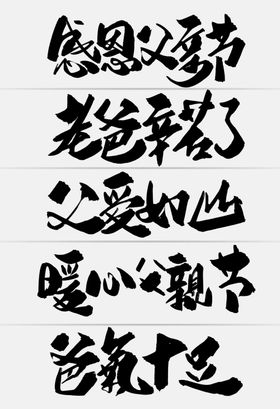 感恩父亲节
老爸辛苦了
父爱如山
暖心父親节
爸氣十足